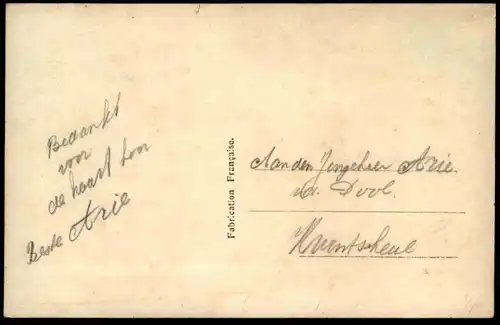 Bedankt
voor
de kaart hoor
beste Arie
Fabrication Française.
Aan den Jongeheer Arie.
v.d. Dool.